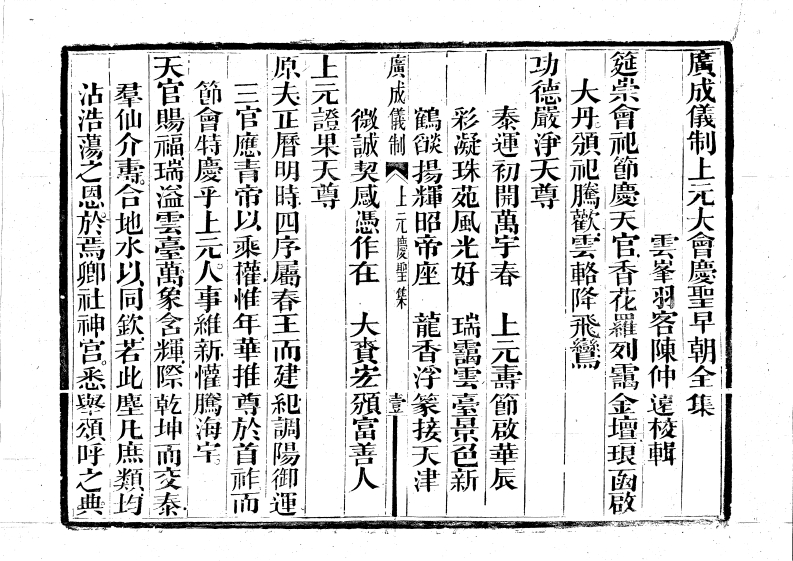 廣成儀制上元大會慶聖早朝全集
雲峯羽客陳仲遠校輯
筵崇會祀節慶天官香花羅列靄金壇琅函啟
大丹頒祀騰歡雲輅降飛鸞
功德嚴淨天尊
泰運初開萬宇春 上元壽節啟華辰
彩凝珠苑風光好 瑞靄雲臺景色新
鶴燄揚輝昭帝座 龍香浮篆接天津
廣成儀制 上元慶聖集 壹
微誠契感憑作在 大賚宏頒富善人
上元證果天尊
原夫正曆明時四序屬春王而建紀調陽御運
三官應青帝以乘權惟年華推尊於首祚而
節會特慶乎上元人事維新懽騰海宇
天官賜福瑞溢雲臺萬象含輝際乾坤而交泰
羣仙介壽合地水以同欽若此塵凡庶類均
沾浩蕩之恩於焉鄉社神宮悉舉頌呼之典